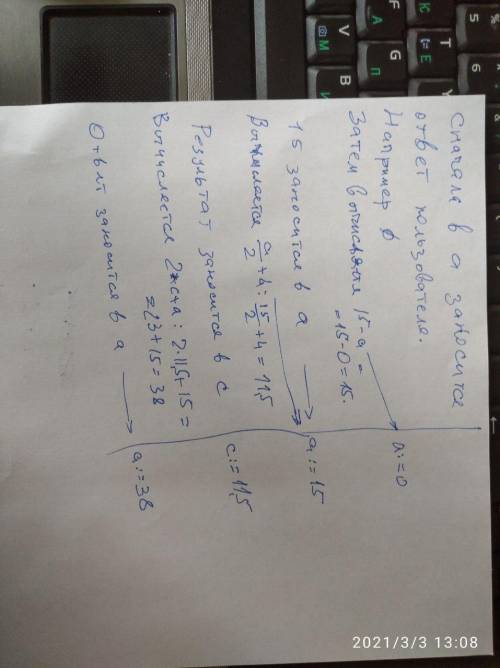 Сначала в а заносится
ответ пользователя.
Например 0
Затем вычисляем 15-а =
= 15-0=15.
а:=0
15 заносится в а
а:=15
Вычисляется а/2 + 4 : 15/2 + 4 = 11,5
Результат заносится в с
с:=11,5
Вычисляется 2*с+а : 2·11,5+15=
=23+15=38
Ответ заносится в а
а:=38
2021/3/3 13:08
%
5
6
R
К
T
Е
F
А
G
П
V
М
B
И